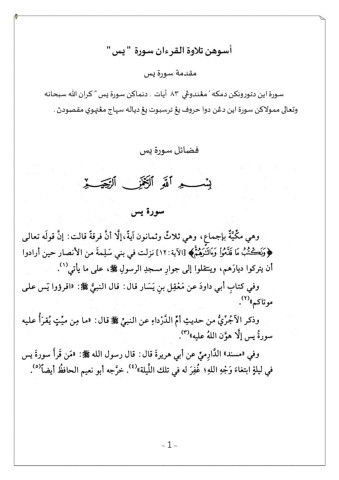 أسوهن تلاوة القرءان سورة "يس"
مقدمة سورة يس
سورة اين دتورونكن دمكه ' مڠندوڠي ٨٣ آيات . دنماكن سورة يس" كران الله سبحانه
وتعالى ممولاكن سورة اين دڠن دوا حروف يڠ ترسبوت يڠ دياله سهاج مڠتهوي مقصودڽ .
فضائل سورة يس
بسم الله الرحمن الرحيم
سورة يس
وهي مكيَّةٌ بإجماعٍ، وهي ثلاثٌ وثمانون آيةً، إلَّا أنَّ فرقةً قالت: إنَّ قولَه تعالى
﴿وَنَكْتُبُ مَا قَدَّمُوا وَءَاثَارَهُمْ﴾ [الآية: ١٢] نزلت في بني سَلِمةَ من الأنصار حين أرادوا
أن يتركوا ديارَهم، وينتقلوا إلى جوار مسجدِ الرسولِ ﷺ، على ما يأتي(١).
وفي كتابِ أبي داودَ عن مَعْقِل بنِ يَسَار قال: قال النبيُّ ﷺ: «اقرؤوا يٓس على
موتاكم»(٢).
وذكر الآجُرِّيُّ من حديثِ أمِّ الدَّرْداءِ عن النبيِّ ﷺ قال: «ما مِن ميِّتٍ يُقرَأُ عليه
سورةُ يس إلَّا هوَّن اللهُ عليه»(٣).
وفي «مسند» الدَّارِميِّ عن أبي هريرةَ قال: قال رسول الله ﷺ: «مَن قَرأَ سورةَ يس
في ليلةٍ ابتغاءَ وَجْهِ اللهِ؛ غُفِرَ له في تلك اللَّيلة»(٤). خرَّجه أبو نعيم الحافظُ أيضاً(٥).
- 1 -